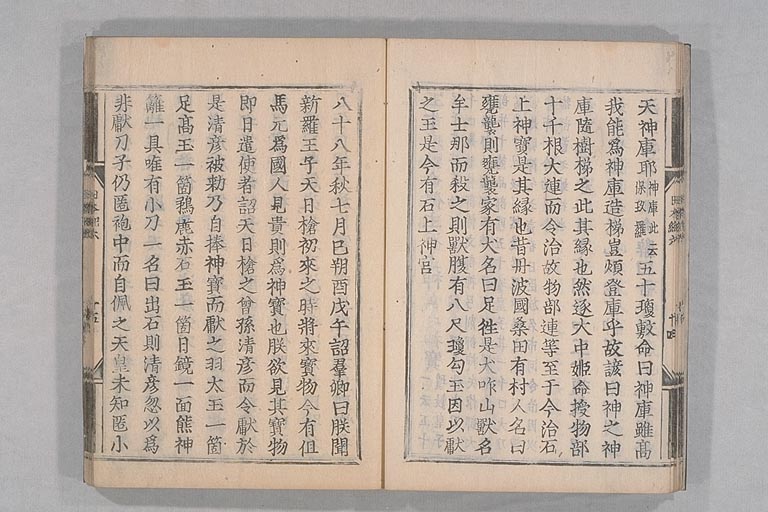 天神庫耶神庫此云保玖羅五十瓊敷命曰神庫雖高
我能爲神庫造梯豈煩登庫乎故諺曰神之神
庫隨樹梯之此其縁也然遂大中姫命授物部
十千根大連而令治故物部連等至于今治石
上神寶是其縁也昔丹波國桑田有村人名曰
甕襲則甕襲家有犬名曰足往是犬咋山獸名
牟士那而殺之則獸腹有八尺瓊勾玉因以獻
之玉是今有石上神宮
八十八年秋七月己朔酉戊午詔羣卿曰朕聞
新羅王子天日槍初來之時將來寶物今有但
馬元爲國人見貴則爲神寶也朕欲見其寶物
即日遣使者詔天日槍之曾孫清彦而令獻於
是清彦被勅乃自捧神寶而獻之羽太玉一箇
足高玉一箇鵜鹿赤石玉一箇日鏡一面熊神
籬一具唯有小刀一名曰出石則清彦忽以爲
非獻刀子仍匿袍中而自佩之天皇未知匿小